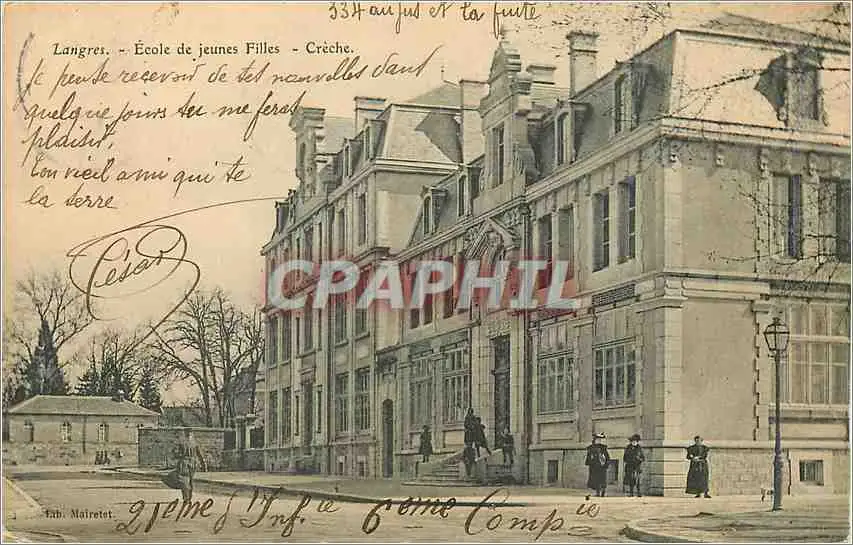 334 au jus et la fuite
Langres. - École de jeunes Filles - Crèche.
Je pense recevoir de tes nouvelles dant
quelque jours tu me feras
plaisir,
ton vieil ami qui te
la serre
César
CPAPHIL
Lib. Mairetet.
21eme d'Infie 6eme Compie